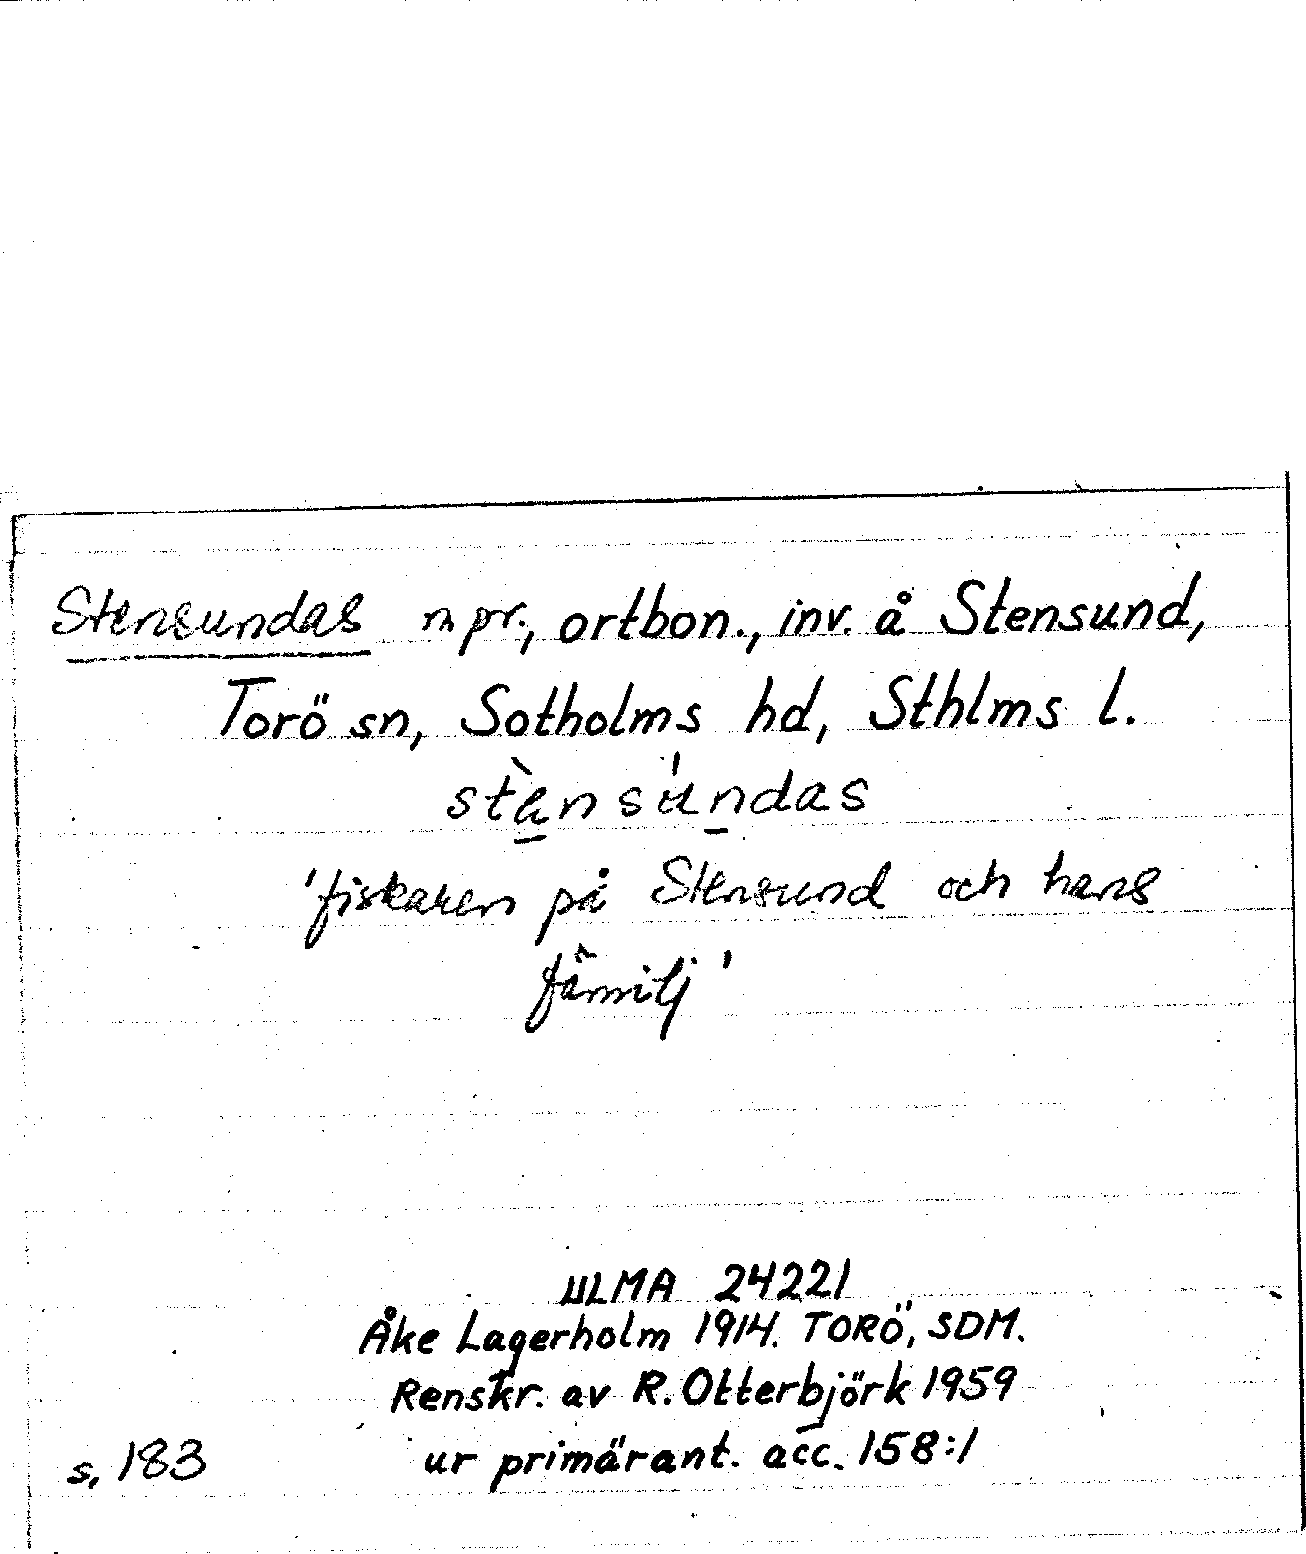 Stensundas n pr., ortbon., inv. å Stensund,
Torö sn, Sotholms hd, Sthlms l.
stànsu̍ndas
'fiskaren på Stensund och hans
familj'
ULMA 24221
Åke Lagerholm 1914. TORÖ, SDM.
Renskr. av R. Otterbjörk 1959
s. 183 ur primärant. acc. 158:1